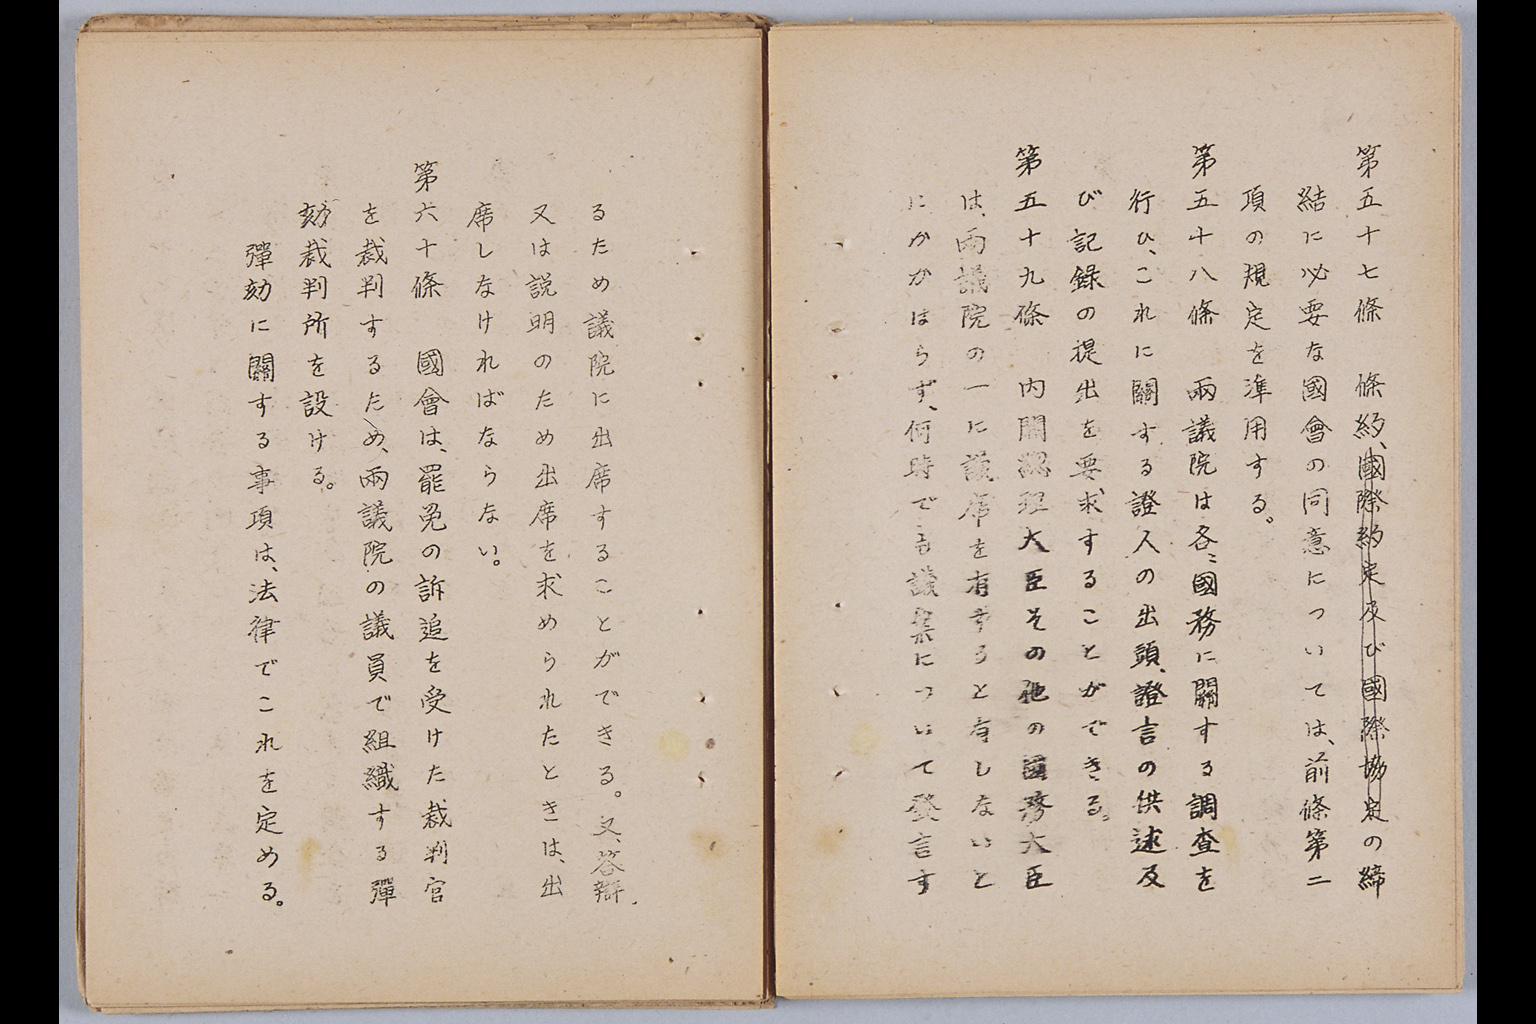 第五十七條　條約、國際約定及び國際協定の締
結に必要な國會の同意については、前條第二
項の規定を準用する。
第五十八條　兩議院は各〻國務に關する調査を
行ひ、これに關する證人の出頭、證言の供述及
び記録の提出を要求することができる。
第五十九條　内閣總理大臣その他の國務大臣
は、兩議院の一に議席を有すると有しないと
にかかはらず、何時でも議案について發言す
るため議院に出席することができる。又、答辯
又は説明のため出席を求められたときは、出
席しなければならない。
第六十條　國會は、罷免の訴追を受けた裁判官
を裁判するため、兩議院の議員で組織する彈
劾裁判所を設ける。
彈劾に關する事項は、法律でこれを定める。